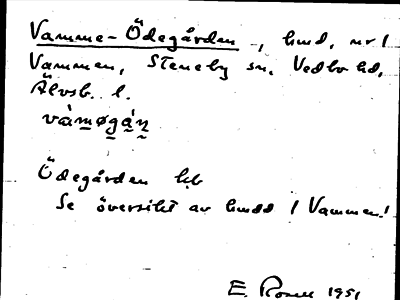 Vamme-Ödegården, hmd, nr 1
Vammen, Steneby sn. Vedbo hd.
Älvsb. l.
vàmøgá̱n̰
Ödegården kb
Se översikt av hmdd / Vammen!
E. Rosell 1951